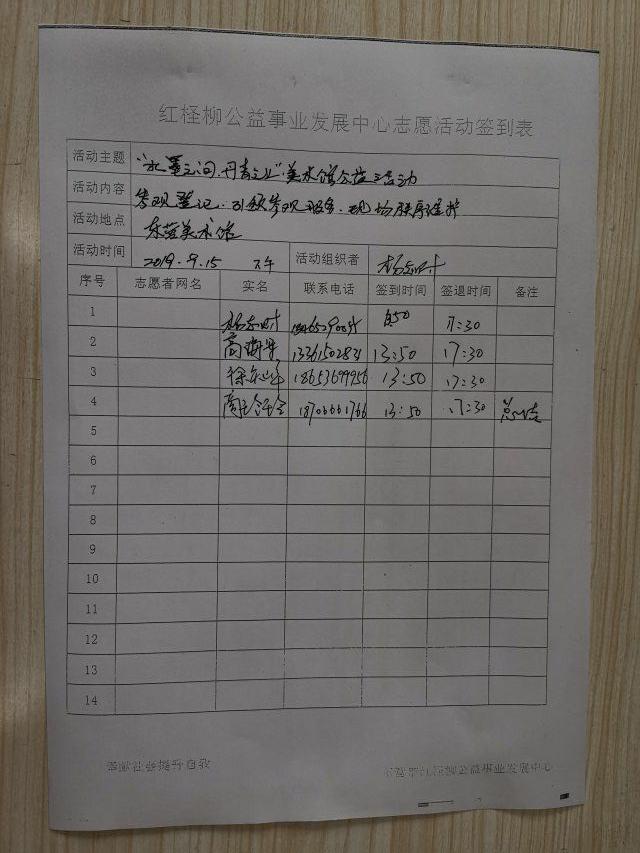 红柽柳公益事业发展中心志愿活动签到表
活动主题 "水墨之间,丹青之业"美术馆公益活动
活动内容 参观登记、引领参观服务、现场秩序维护
活动地点 东营美术馆
活动时间 2019.9.15 下午 活动组织者
序号 志愿者网名 实名 联系电话 签到时间 签退时间 备注
1 17:30
2 13361502831 13:50 17:30
3 18653699956 13:50 17:30
4 18706661766 13:50 17:30
5
6
7
8
9
10
11
12
13
14
奉献社会提升自我 东营市红柽柳公益事业发展中心